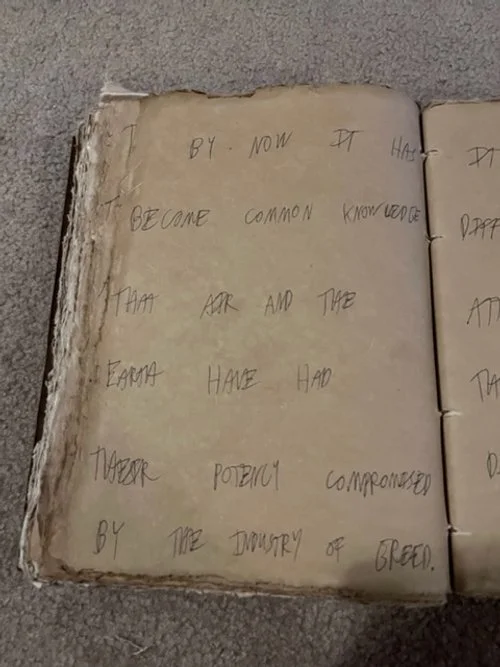 I BY. NOW IT HAS
BECOME COMMON KNOWLEDGE
THAT AIR AND THE
EARTH HAVE HAD
THEIR POTENCY COMPROMISED
BY THE INDUSTRY OF GREED.
IT